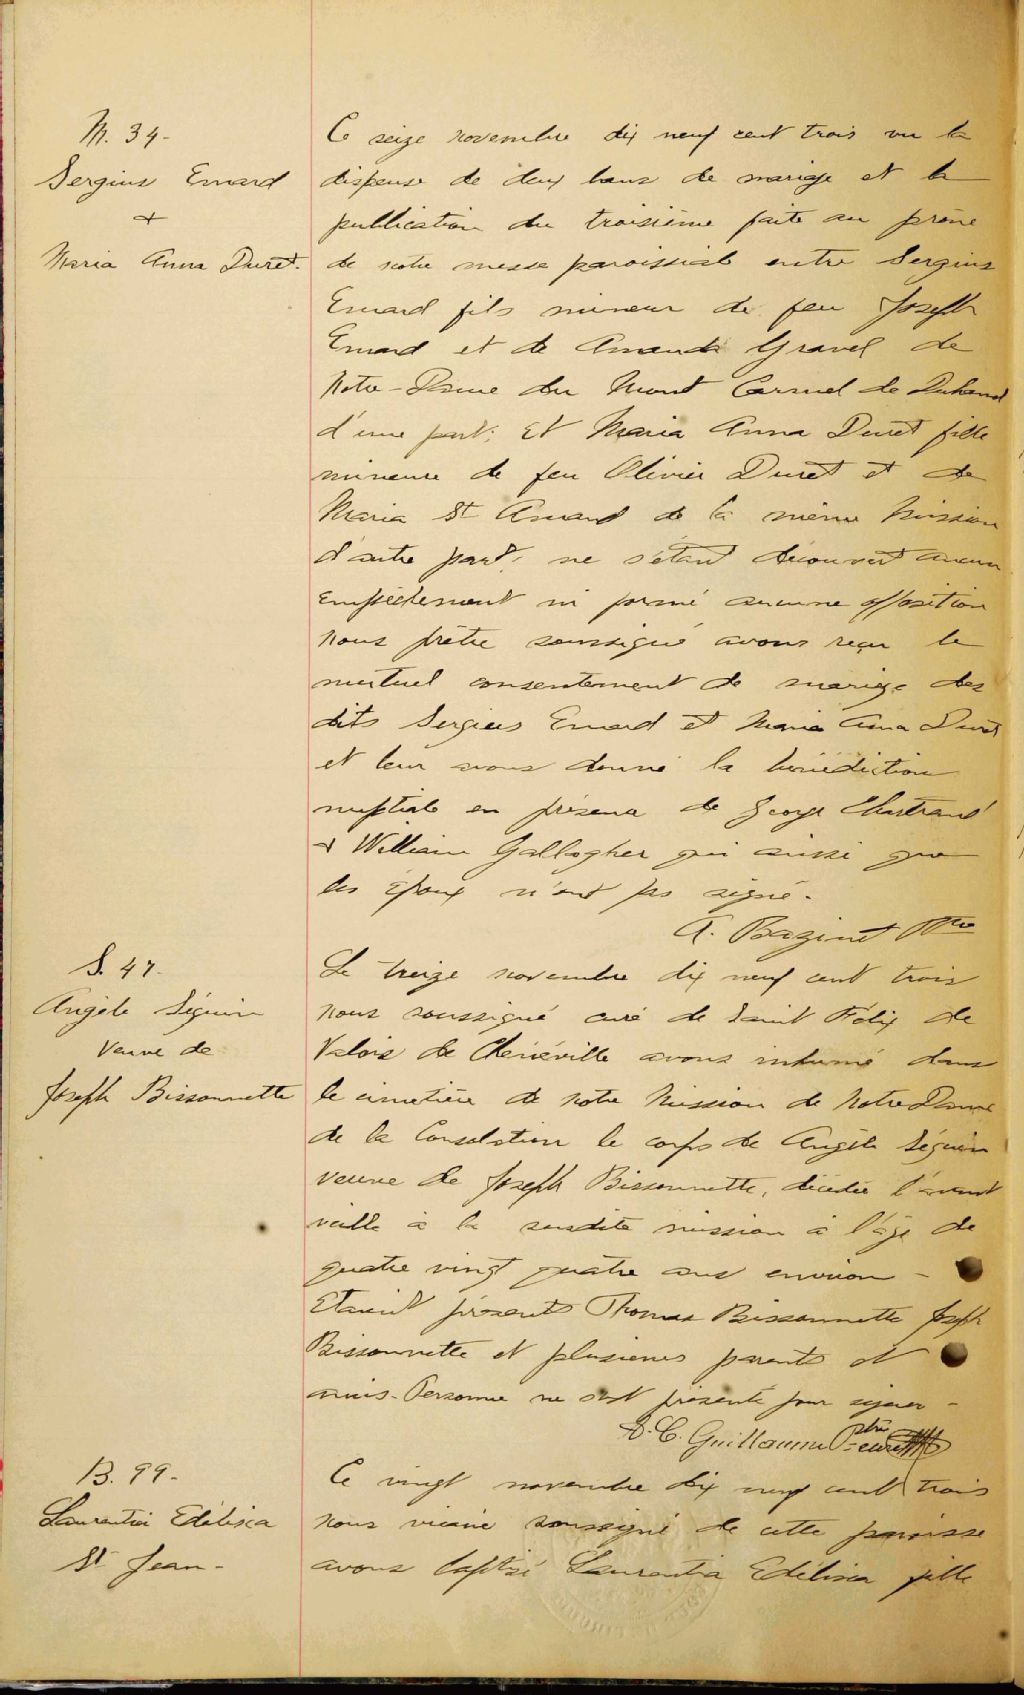 M. 34-
Sergius Emard
+
Maria Anna Duret.
Ce seize novembre dix neuf cent trois vu la
dispense de deux bans de mariage et la
publication du troisième faite au prône
de notre messe paroissiale entre Sergius
Emard fils mineur de feu Joseph
Emard et de Amanda Gravel de
Notre-Dame du Mont Carmel de Duhamel
d'une part; Et Maria Anna Duret fille
mineure de feu Olivier Duret et de
Maria St Amand de la même Mission
d'autre part; ne s'étant découvert aucun
empêchement ni formé aucune opposition
nous prêtre soussigné avons reçu le
mutuel consentement de mariage des
dits Sergius Emard et Maria Anna Duret
et leur avons donné la bénédiction
nuptiale en présence de George Chartrand
+ William Gallagher qui aussi que
les époux n'ont pas signé.
A. Bazinet Ptre
S. 47.
Angèle Séguin
Veuve de
Joseph Bissonnette
Le treize novembre dix neuf cent trois
nous soussigné curé de Saint Félix de
Valois de Chénéville avons inhumé dans
le cimetière de notre Mission de Notre Dame
de la Consolation le corps de Angèle Séguin
veuve de Joseph Bissonnette, décédée l'avant
veille à la susdite mission à l'âge de
quatre vingt quatre ans environ -
Etaient présents Thomas Bissonnette Joseph
Bissonnette et plusieurs parents et
amis. Personne ne s'est présenté pour signer -
C. Guillaume ptre curé
B. 99-
Laurentia Edélisca
St Jean-
Ce vingt novembre dix neuf cent trois
nous vicaire soussigné de cette paroisse
avons baptisé Laurentia Edélisca fille